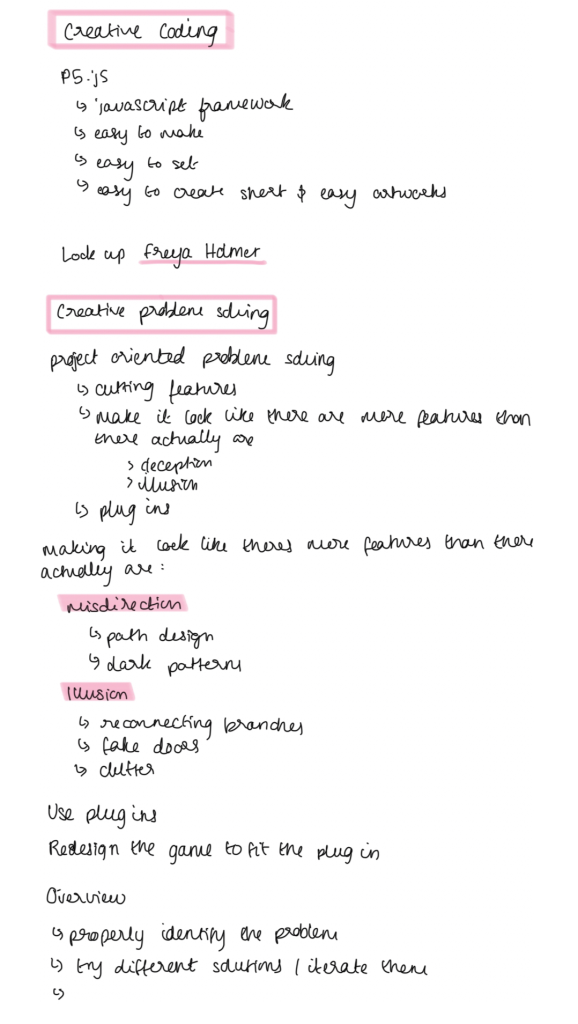 Creative Coding
P5.js
↳ javascript framework
↳ easy to make
↳ easy to set
↳ easy to create short & easy artworks
Look up Freya Holmer
Creative problem solving
project oriented problem solving
↳ cutting features
↳ make it look like there are more features than
there actually are
> deception
> illusion
↳ plug ins
making it look like theres more features than there
actually are:
misdirection
↳ path design
↳ dark patterns
Illusion
↳ reconnecting branches
↳ fake doors
↳ clutter
Use plug ins
Redesign the game to fit the plug in
Overview
↳ properly identify the problem
↳ try different solutions / iterate them
↳